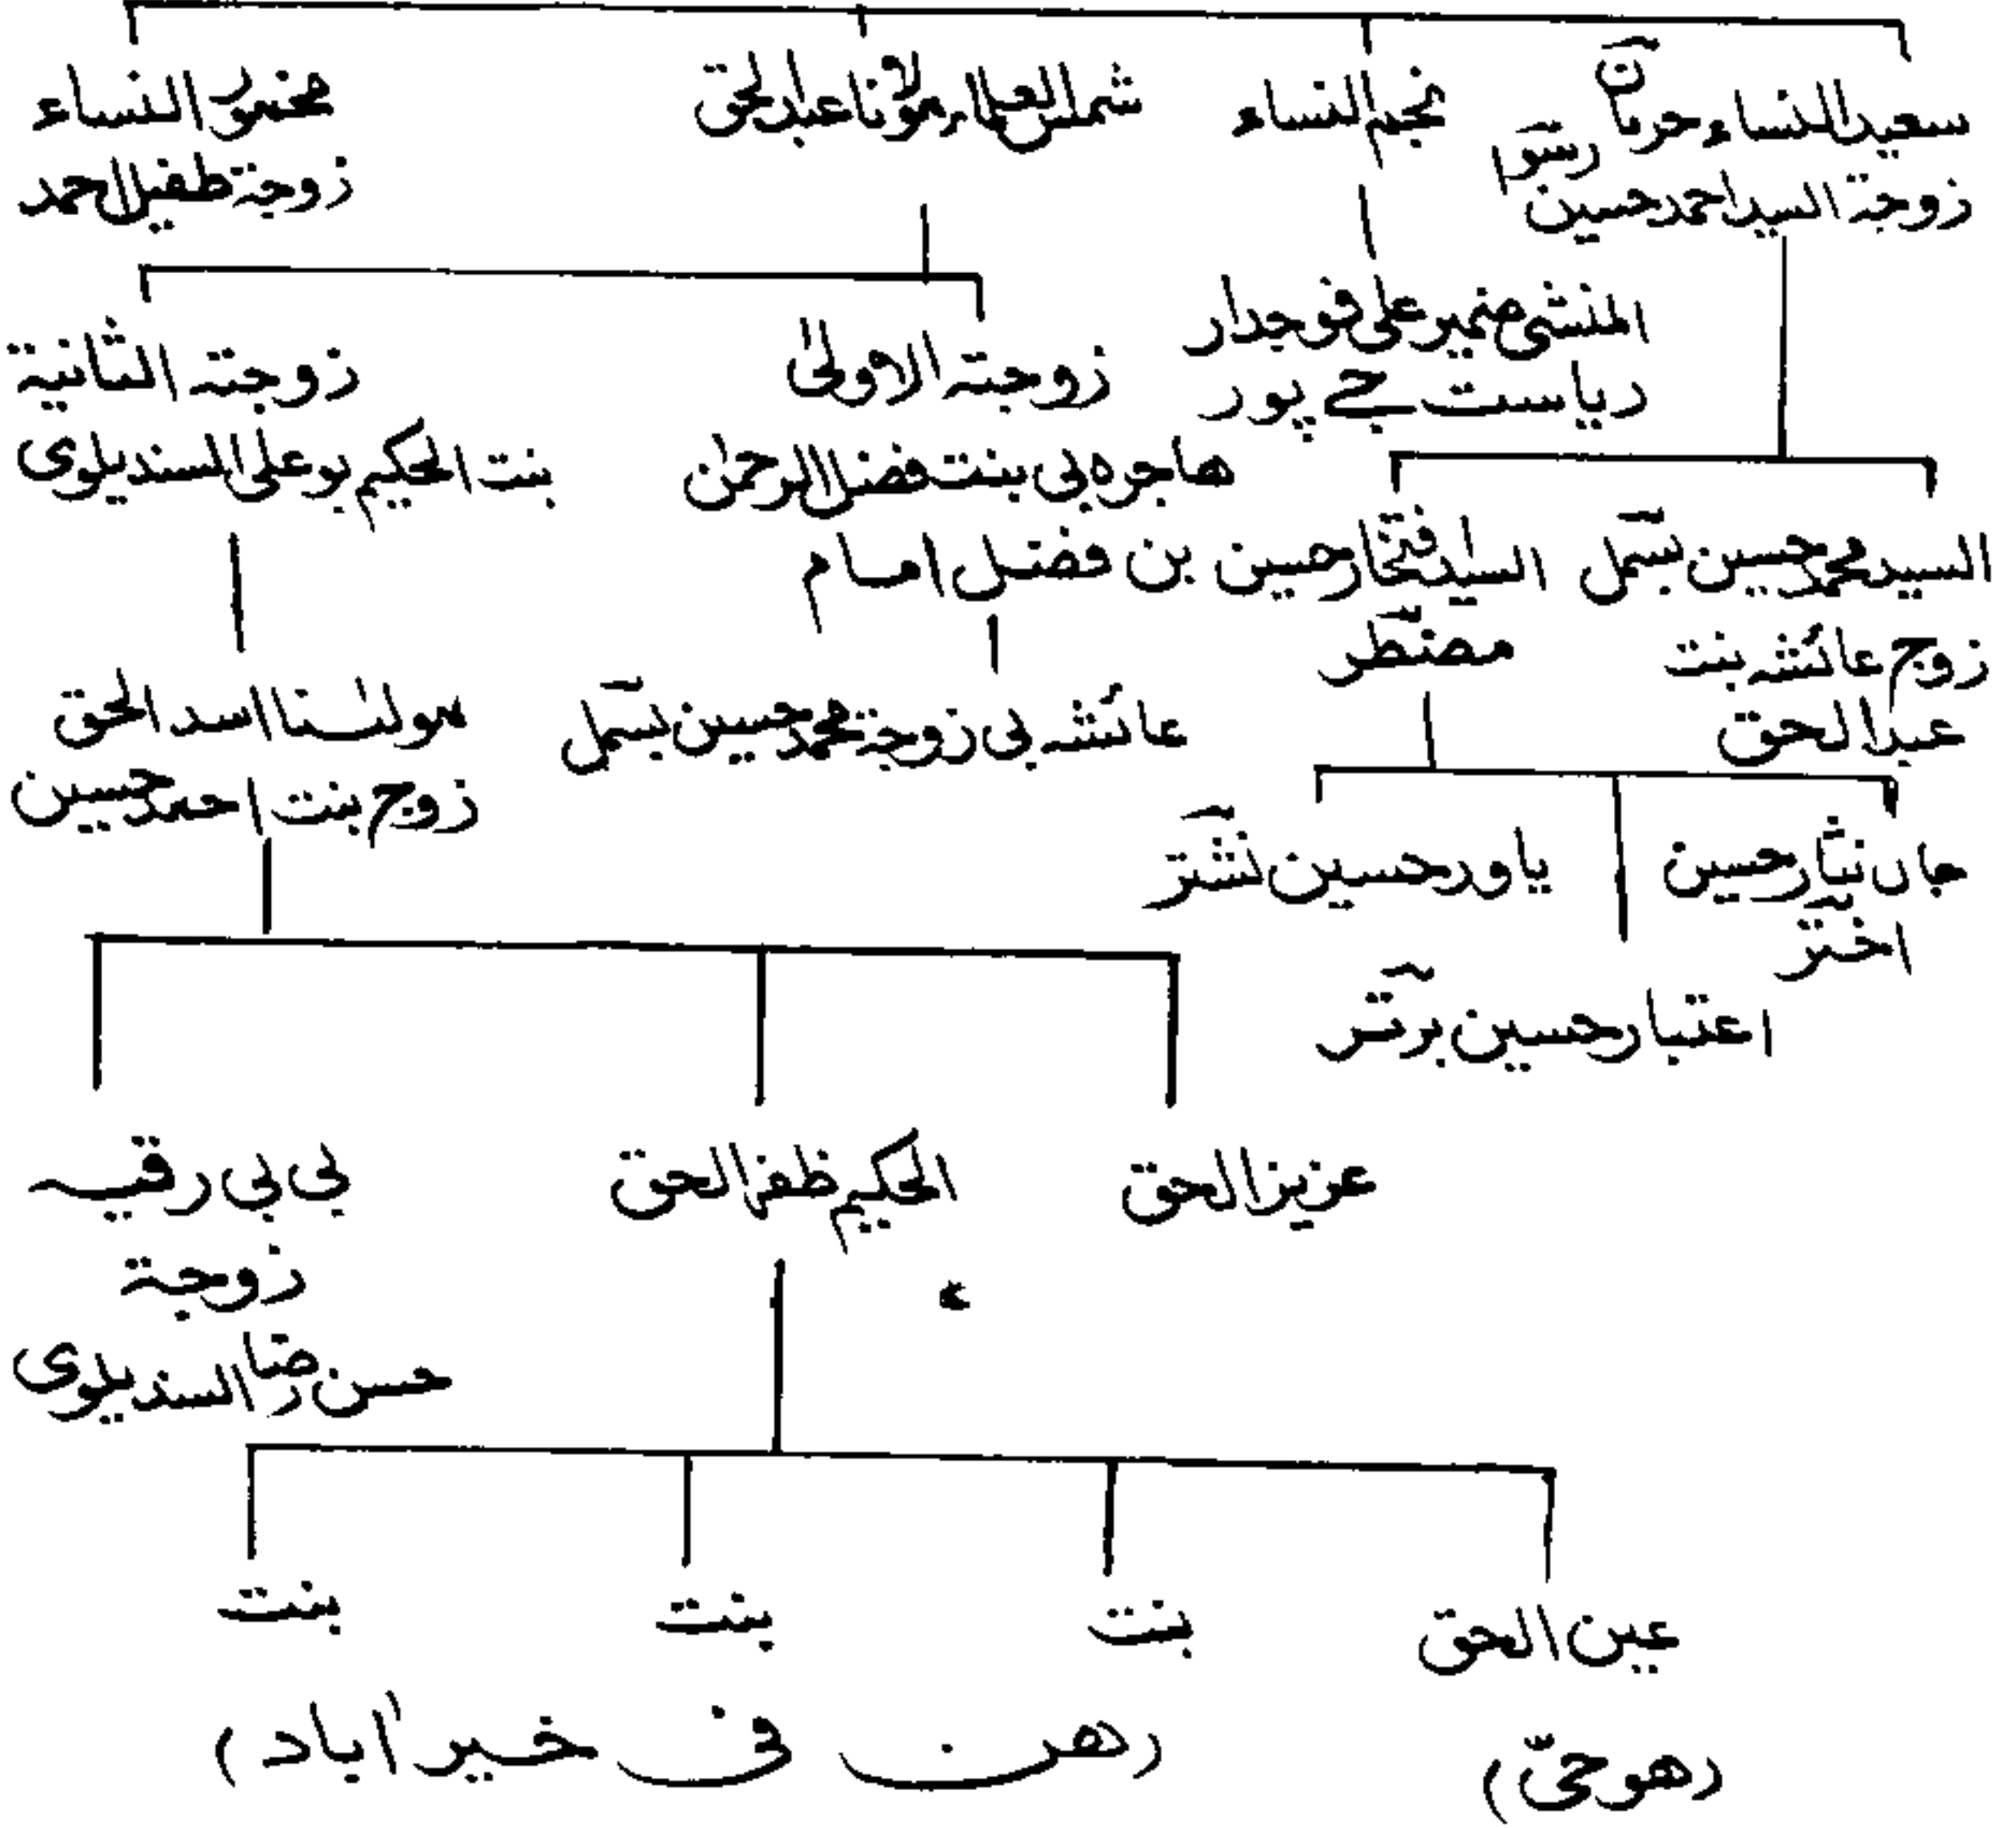 سعید النساء حرماں
زوجة السید احمد حسین رسوا
نجم النساء
شمس العلماء مولانا عبد الحق
مخمور النساء
زوجة طفیل احمد
المنشی ضمیر علی فوجدار
ریاست جے پور
زوجته الاولیٰ
هاجره بی بنت فضل الرحمٰن
بن فضل امام
زوجته الثانیة
بنت الحکیم بو علی السندیلوی
السید محمد حسین بسمل
زوج عائشه بنت
عبد الحق
السید افتخار حسین
مضطر
عائشه بی زوجة محمد حسین بسمل
مولٰنا اسد الحق
زوج بنت احمد حسین
جاں نثار حسین
اختر
یاور حسین نشتر
اعتبار حسین برتر
عزیز الحق
الحکیم ظفر الحق
بی بی رقیه
زوجة
حسن رضا السندیلوی
عین الحق
بنت
بنت
بنت
(هو حیّ)
(هن فی خیر آباد)